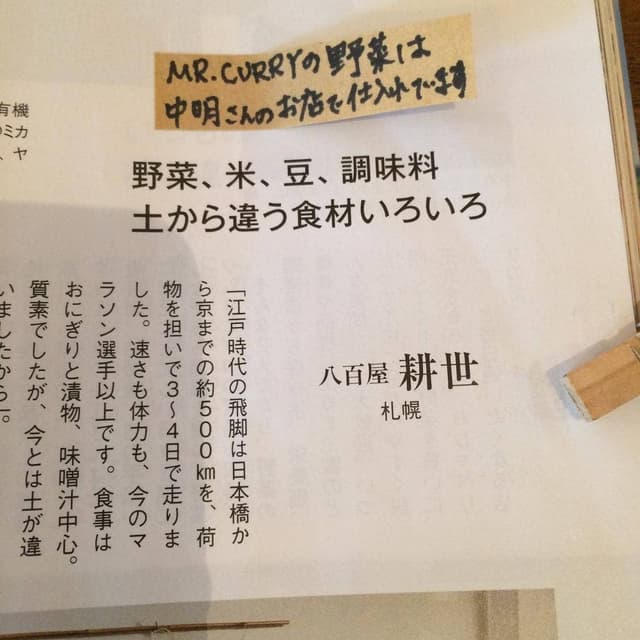 MR.CURRYの野菜は
中明さんのお店で仕入れています
野菜、米、豆、調味料
土から違う食材いろいろ
八百屋 耕世
札幌
「江戸時代の飛脚は日本橋か
ら京までの約500kmを、荷
物を担いで3〜4日で走りま
した。速さも体力も、今のマ
ラソン選手以上です。食事は
おにぎりと漬物、味噌汁中心。
質素でしたが、今とは土が違
いましたから」。
有機
ミカ
、ヤ